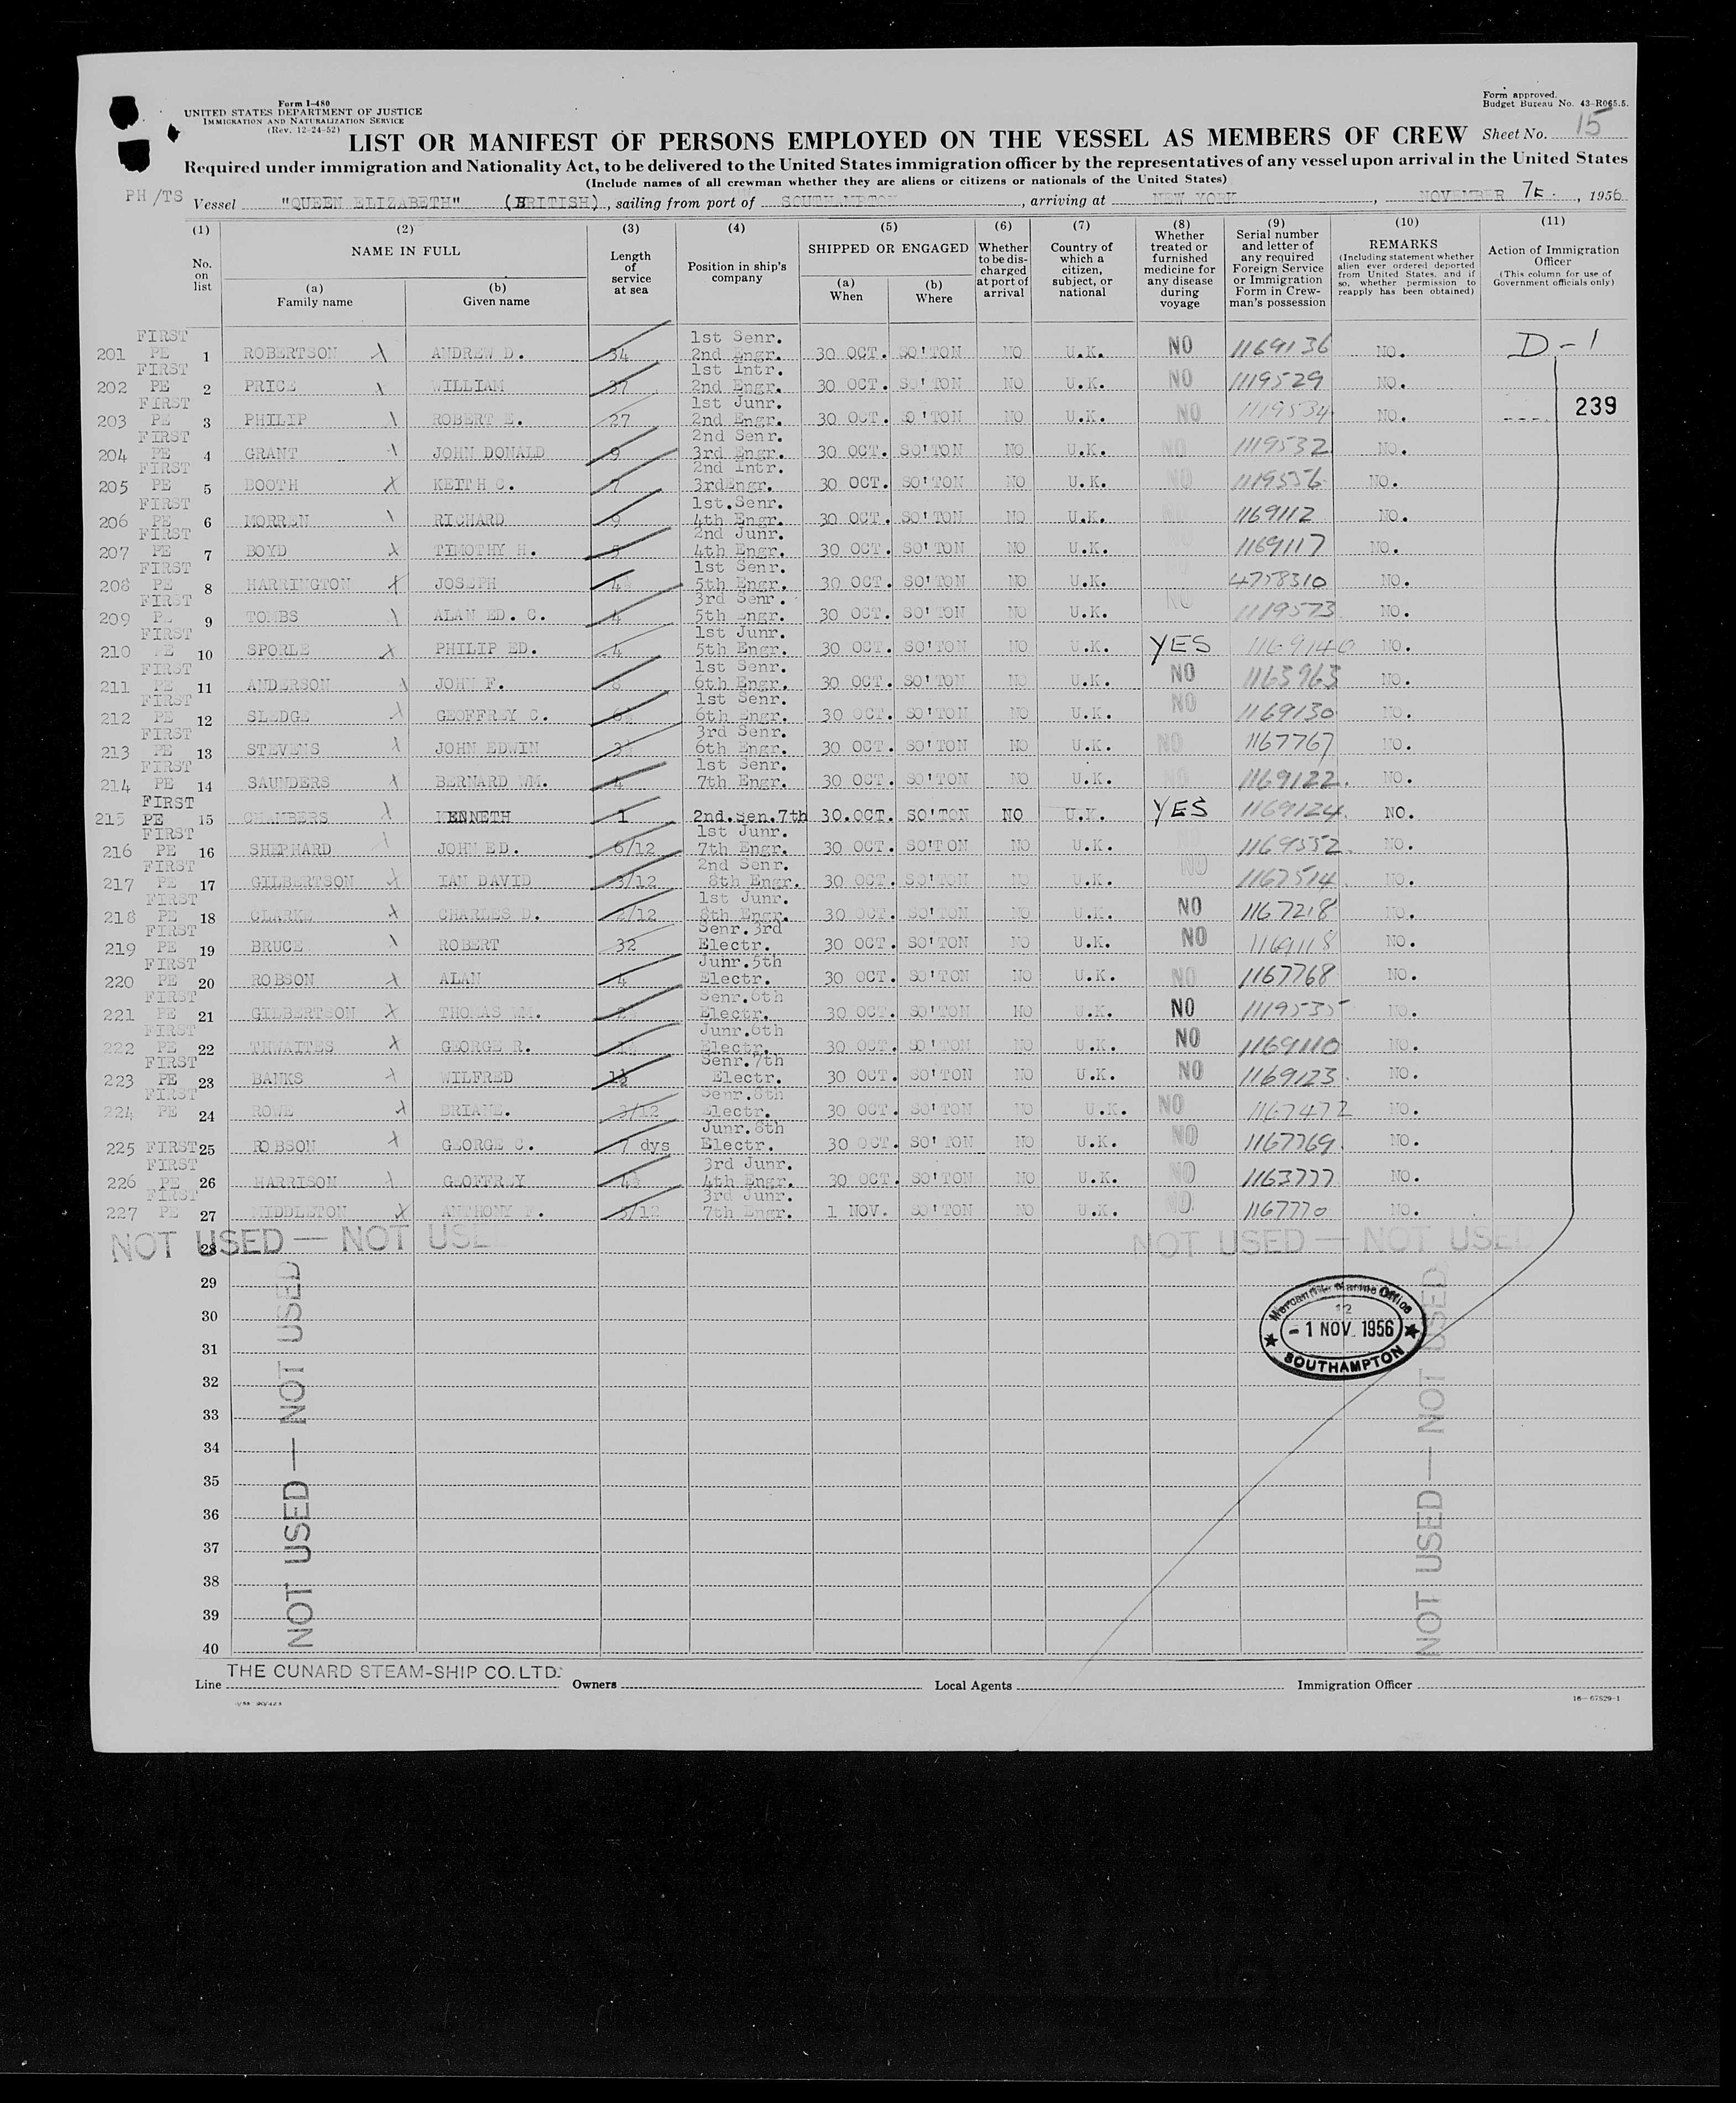 Form I-480
UNITED STATES DEPARTMENT OF JUSTICE
IMMIGRATION AND NATURALIZATION SERVICE
(Rev. 12-24-52)
Form approved.
Budget Bureau No. 43-R065.5.
LIST OR MANIFEST OF PERSONS EMPLOYED ON THE VESSEL AS MEMBERS OF CREW Sheet No. 15
Required under immigration and Nationality Act, to be delivered to the United States immigration officer by the representatives of any vessel upon arrival in the United States
(Include names of all crewman whether they are aliens or citizens or nationals of the United States)
PH/TS Vessel "QUEEN ELIZABETH" (BRITISH), sailing from port of SOUTHAMPTON, arriving at NEW YORK, NOVEMBER 7, 1956
(1) No. on list
(2) NAME IN FULL (a) Family name (b) Given name
(3) Length of service at sea
(4) Position in ship's company
(5) SHIPPED OR ENGAGED (a) When (b) Where
(6) Whether to be discharged at port of arrival
(7) Country of which a citizen, subject, or national
(8) Whether treated or furnished medicine for any disease during voyage
(9) Serial number and letter of any required Foreign Service or Immigration Form in Crewman's possession
(10) REMARKS (Including statement whether alien ever ordered deported from United States, and if so, whether permission to reapply has been obtained)
(11) Action of Immigration Officer (This column for use of Government officials only)
FIRST 1st Senr.
201 PE 1 ROBERTSON X ANDREW D. 34 2nd Engr. 30 OCT. SO'TON NO U.K. NO 1169136 NO. D-1
FIRST 1st Intr.
202 PE 2 PRICE X WILLIAM 37 2nd Engr. 30 OCT. SO'TON NO U.K. NO 1119529 NO.
FIRST 1st Junr.
203 PE 3 PHILIP X ROBERT E. 27 2nd Engr. 30 OCT. SO'TON NO U.K. NO 1119534 NO. 239
FIRST 2nd Senr.
204 PE 4 GRANT X JOHN DONALD 9 3rd Engr. 30 OCT. SO'TON NO U.K. NO 1119532 NO.
FIRST 2nd Intr.
205 PE 5 BOOTH X KEITH C. 7 3rdEngr. 30 OCT. SO'TON NO U.K. NO 1119536 NO.
FIRST 1st.Senr.
206 PE 6 MORREN X RICHARD 9 4th Engr. 30 OCT. SO'TON NO U.K. 1169112 NO.
FIRST 2nd Junr.
207 PE 7 BOYD X TIMOTHY H. 5 4th Engr. 30 OCT. SO'TON NO U.K. 1169117 NO.
FIRST 1st Senr.
208 PE 8 HARRINGTON X JOSEPH 5th Engr. 30 OCT. SO'TON NO U.K. 4758310 NO.
FIRST 3rd Senr.
209 PE 9 TOMBS X ALAN ED. C. 4 5th Engr. 30 OCT. SO'TON NO U.K. NO 1119573 NO.
FIRST 1st Junr.
210 PE 10 SPORLE X PHILIP ED. 4 5th Engr. 30 OCT. SO'TON NO U.K. YES 1169140 NO.
FIRST 1st Senr.
211 PE 11 ANDERSON X JOHN F. 6th Engr. 30 OCT. SO'TON NO U.K. NO 1163963 NO.
FIRST 1st Senr.
212 PE 12 SLEDGE X GEOFFREY C. 6th Engr. 30 OCT. SO'TON NO U.K. NO 1169130 NO.
FIRST 3rd Senr.
213 PE 13 STEVENS X JOHN EDWIN 6th Engr. 30 OCT. SO'TON NO U.K. NO 1167767 NO.
FIRST 1st Senr.
214 PE 14 SAUNDERS X BERNARD WM. 4 7th Engr. 30 OCT. SO'TON NO U.K. NO 1169122. NO.
FIRST
215 PE 15 CHAMBERS X KENNETH 1 2nd.Sen.7th 30.OCT. SO'TON NO U.K. YES 1169124. NO.
FIRST 1st Junr.
216 PE 16 SHEPHARD X JOHN ED. 6/12 7th Engr. 30 OCT. SO'TON NO U.K. 1169352. NO.
FIRST 2nd Senr.
217 PE 17 GILBERTSON X IAN DAVID 3/12 8th Engr. 30 OCT. SO'TON NO U.K. NO 1167514. NO.
FIRST 1st Junr.
218 PE 18 CLARKE X CHARLES D. 8th Engr. 30 OCT. SO'TON NO U.K. NO 1167218 NO.
FIRST Senr.3rd
219 PE 19 BRUCE X ROBERT 32 Electr. 30 OCT. SO'TON NO U.K. NO 1169118 NO.
FIRST Junr.5th
220 PE 20 ROBSON X ALAN 4 Electr. 30 OCT. SO'TON NO U.K. NO 1167768 NO.
FIRST Senr.6th
221 PE 21 GILBERTSON X THOMAS WM. Electr. 30 OCT. SO'TON NO U.K. NO 1119535 NO.
FIRST Junr.6th
222 PE 22 THWAITES X GEORGE R. Electr. 30 OCT. SO'TON NO U.K. NO 1169110 NO.
FIRST Senr.7th
223 PE 23 BANKS X WILFRED 1½ Electr. 30 OCT. SO'TON NO U.K. NO 1169123. NO.
FIRST Senr.8th
224 PE 24 ROWE X BRIANE. 3/12 Electr. 30 OCT. SO'TON NO U.K. NO 1167472 NO.
Junr.8th
225 FIRST 25 ROBSON X GEORGE C. 7 dys Electr. 30 OCT. SO'TON NO U.K. NO 1167769. NO.
FIRST 3rd Junr.
226 PE 26 HARRISON X GEOFFREY 4½ 4th Engr. 30 OCT. SO'TON NO U.K. NO 1163777 NO.
FIRST 3rd Junr.
227 PE 27 MIDDLETON X ANTHONY F. 7th Engr. 1 NOV. SO'TON NO U.K. NO. 1167770 NO.
NOT USED — NOT USED 28 NOT USED — NOT USED
29
30
31
32
33
34
35
36
37
38
39
40
NOT USED — NOT USED — NOT USED
NOT USED — NOT USED — NOT USED
Mercantile Marine Office
12
- 1 NOV. 1956
SOUTHAMPTON
Line THE CUNARD STEAM-SHIP CO. LTD. Owners Local Agents Immigration Officer
16—67829-1